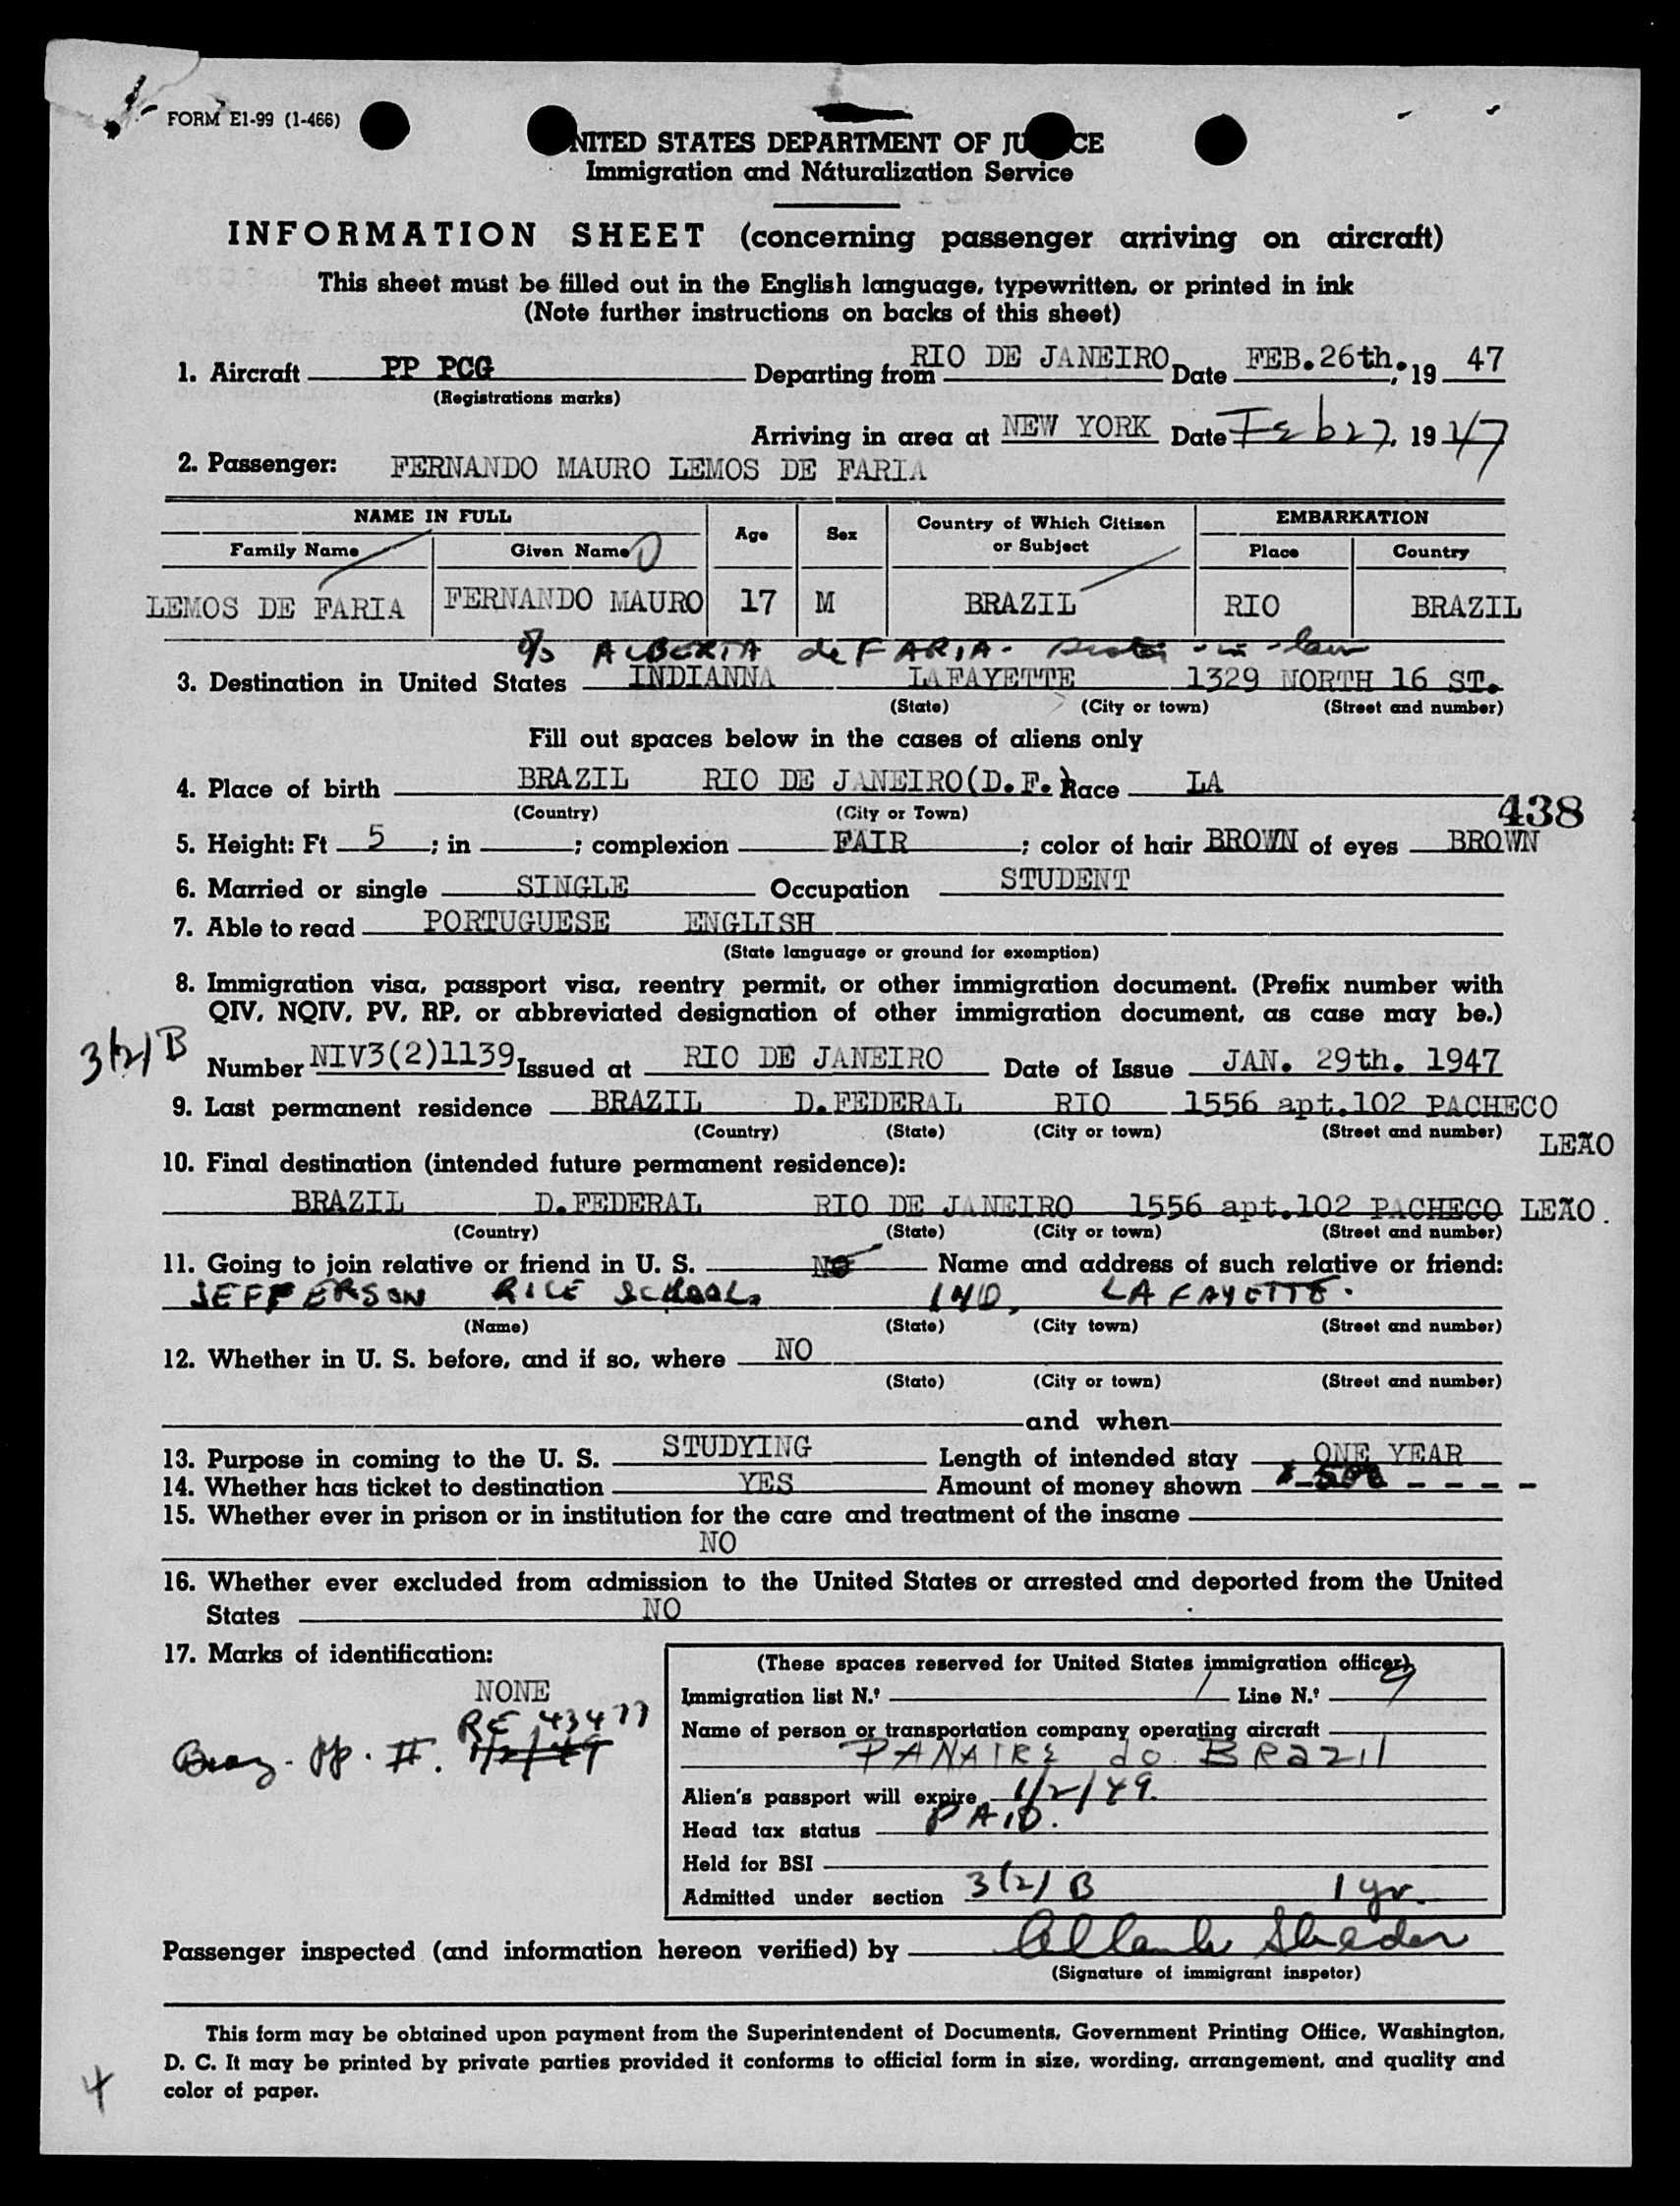 FORM E1-99 (1-466)
NITED STATES DEPARTMENT OF JU CE
Immigration and Náturalization Service
INFORMATION SHEET (concerning passenger arriving on aircraft)
This sheet must be filled out in the English language, typewritten, or printed in ink
(Note further instructions on backs of this sheet)
1. Aircraft PP PCG Departing from RIO DE JANEIRO Date FEB.26th., 19 47
(Registrations marks)
Arriving in area at NEW YORK Date Feb 27, 19 47
2. Passenger: FERNANDO MAURO LEMOS DE FARIA
NAME IN FULL Age Sex Country of Which Citizen or Subject EMBARKATION
Family Name Given Name Place Country
LEMOS DE FARIA FERNANDO MAURO 17 M BRAZIL RIO BRAZIL
c/o ALBERTA de FARIA - sister-in-law
3. Destination in United States INDIANNA LAFAYETTE 1329 NORTH 16 ST.
(State) (City or town) (Street and number)
Fill out spaces below in the cases of aliens only
4. Place of birth BRAZIL RIO DE JANEIRO(D.F.) Race LA
(Country) (City or Town)
438
5. Height: Ft 5 ; in ; complexion FAIR ; color of hair BROWN of eyes BROWN
6. Married or single SINGLE Occupation STUDENT
7. Able to read PORTUGUESE ENGLISH
(State language or ground for exemption)
8. Immigration visa, passport visa, reentry permit, or other immigration document. (Prefix number with
QIV, NQIV, PV, RP, or abbreviated designation of other immigration document, as case may be.)
3(2)B
Number NIV3(2)1139 Issued at RIO DE JANEIRO Date of Issue JAN. 29th. 1947
9. Last permanent residence BRAZIL D.FEDERAL RIO 1556 apt.102 PACHECO
(Country) (State) (City or town) (Street and number) LEÃO
10. Final destination (intended future permanent residence):
BRAZIL D.FEDERAL RIO DE JANEIRO 1556 apt.102 PACHECO LEÃO.
(Country) (State) (City or town) (Street and number)
11. Going to join relative or friend in U. S. NO Name and address of such relative or friend:
JEFFERSON RICE SCHOOL, IND, LAFAYETTE.
(Name) (State) (City town) (Street and number)
12. Whether in U. S. before, and if so, where NO
(State) (City or town) (Street and number)
and when
13. Purpose in coming to the U. S. STUDYING Length of intended stay ONE YEAR
14. Whether has ticket to destination YES Amount of money shown - - - -
15. Whether ever in prison or in institution for the care and treatment of the insane
NO
16. Whether ever excluded from admission to the United States or arrested and deported from the United
States NO
17. Marks of identification:
NONE
RE 43477
Braz. pp. #. 1/2/49
(These spaces reserved for United States immigration officer)
Immigration list N.º 1 Line N.º 9
Name of person or transportation company operating aircraft
PANAIRE do BRazil
Alien's passport will expire 1/2/49.
Head tax status PAID.
Held for BSI
Admitted under section 3(2) B 1 yr.
Passenger inspected (and information hereon verified) by
(Signature of immigrant inspetor)
This form may be obtained upon payment from the Superintendent of Documents, Government Printing Office, Washington,
D. C. It may be printed by private parties provided it conforms to official form in size, wording, arrangement, and quality and
color of paper.
4